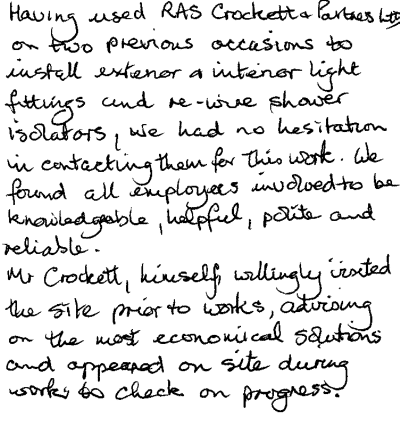 Having used RAS Crockett & Partners Ltd
on two previous occasions to
install exterior & interior light
fittings and re-wire shower
isolators, we had no hesitation
in contacting them for this work. We
found all employees involved to be
knowledgeable, helpful, polite and
reliable.
Mr Crockett, himself, willingly visited
the site prior to works, advising
on the most economical solutions
and appeared on site during
works to check on progress.